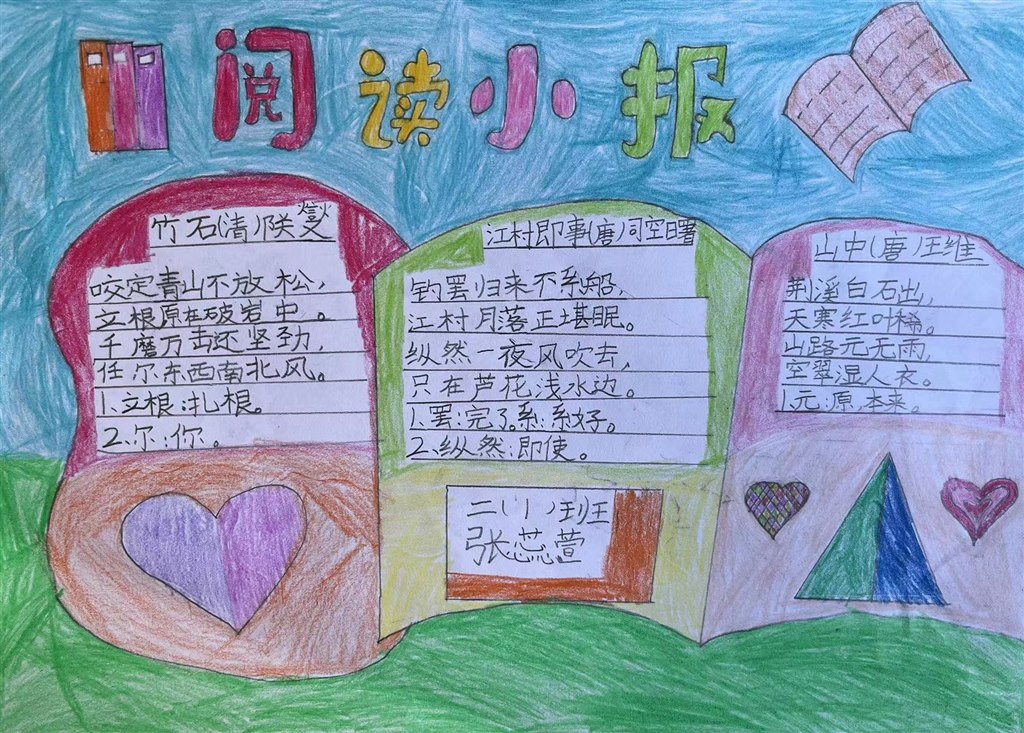 阅读小报
竹石(清)郑燮
咬定青山不放松,
立根原在破岩中。
千磨万击还坚劲,
任尔东西南北风。
1、立根:扎根。
2、尔:你。
江村即事(唐)司空曙
钓罢归来不系船,
江村月落正堪眠。
纵然一夜风吹去,
只在芦花浅水边。
1、罢:完了。系:系好。
2、纵然:即使。
二(1)班
张蕊萱
山中(唐)王维
荆溪白石出,
天寒红叶稀。
山路元无雨,
空翠湿人衣。
1、元:原,本来。